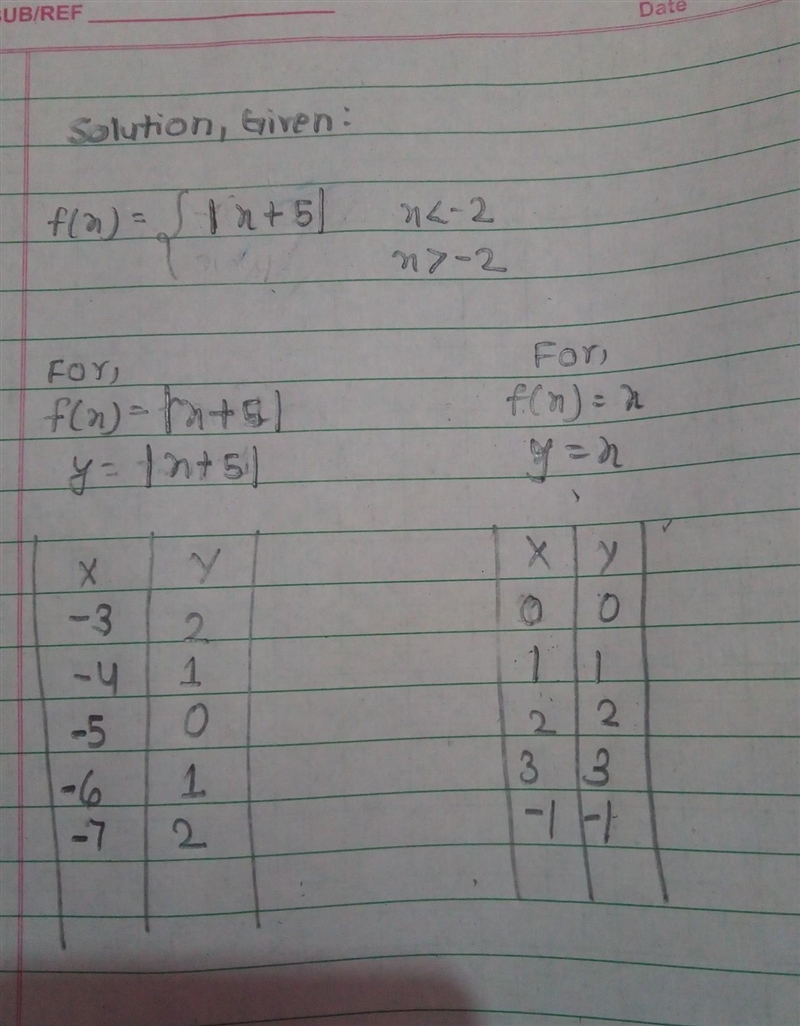 SUB/REF
Date
Solution, Given:
f(x) = { |x+5| x<-2
x>-2
For,
f(x) = |x+5|
y = |x+5|
For,
f(x) = x
y = x
X Y
-3 2
-4 1
-5 0
-6 1
-7 2
X Y
0 0
1 1
2 2
3 3
-1 -1